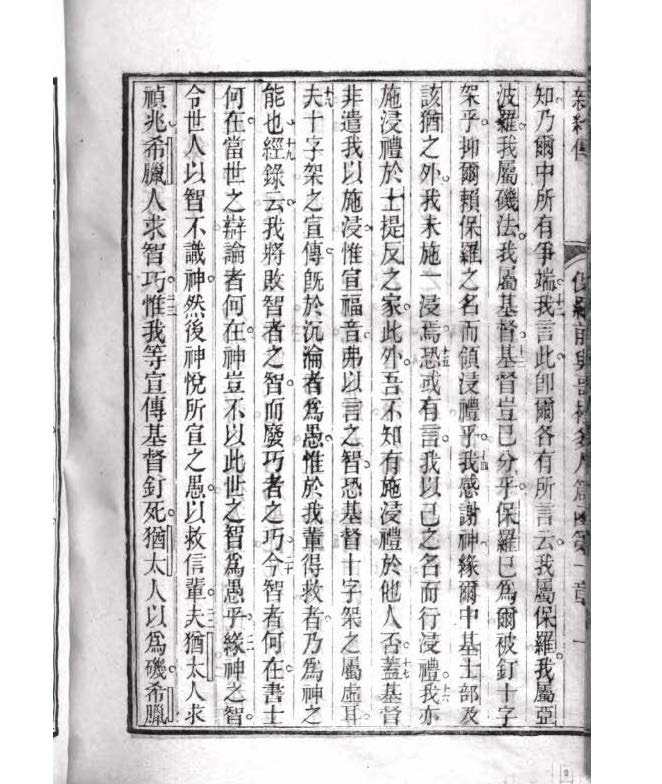 新約傳 保羅前與哥林多人篇 第一章 一
知乃爾中所有爭端。十二我言此卽爾各有所言云我屬保羅。我屬亞
波羅我屬磯法。我屬基督。十三基督豈已分乎。保羅已爲爾被釘十字
架乎。抑爾賴保羅之名而領浸禮乎。十四我感謝神緣爾中基士部及
該猶之外。我未施一浸焉。十五恐或有言。我以己之名而行浸禮。十六我亦
施浸禮於士提反之家。此外。吾不知有施浸禮於他人否。十七蓋基督
非遣我以施浸。惟宣福音。弗以言之智。恐基督十字架之屬虛耳。
十八夫十字架之宣傳。旣於沉淪者爲愚。惟於我輩得救者。乃爲神之
能也。十九經錄云。我將敗智者之智。而廢巧者之巧。二十今智者何在。書士
何在。當世之辯論者何在。神豈不以此世之智爲愚乎。二一緣神之智。
令世人以智不識神。然後神悅所宣之愚。以救信輩。二二夫猶太人求
禎兆。希臘人求智巧。二三惟我等宣傳基督釘死。猶太人以爲磯。希臘